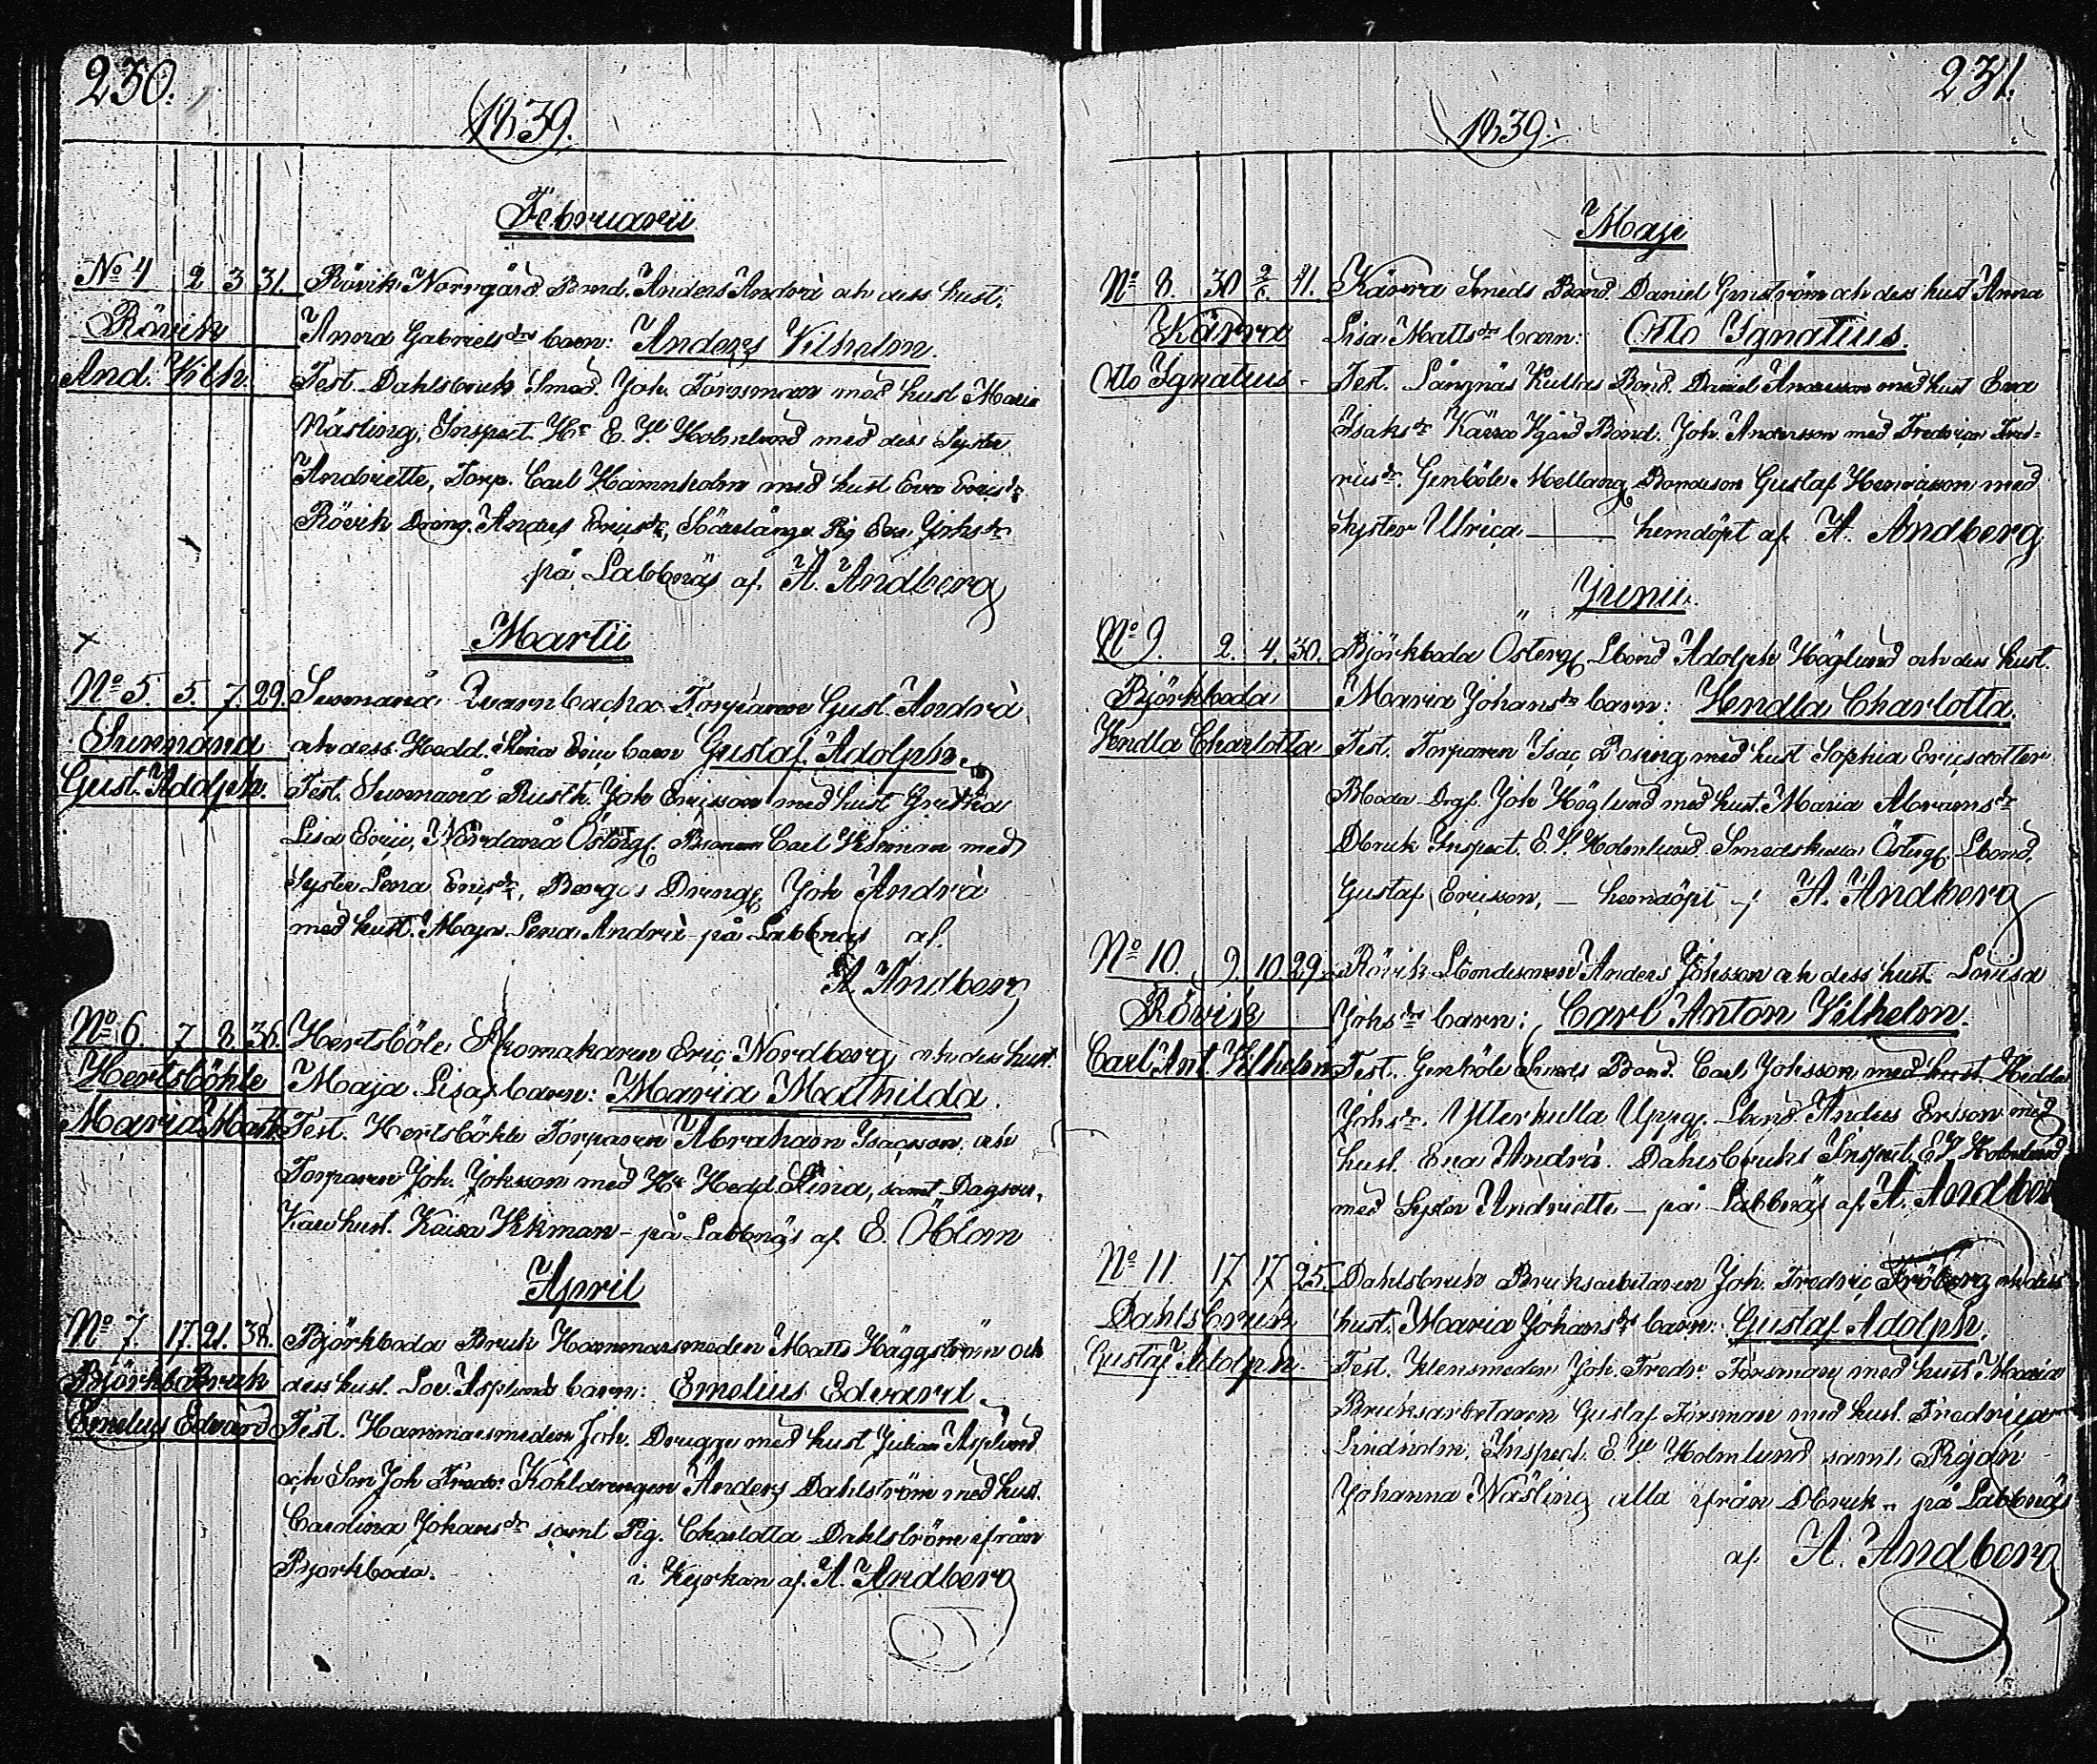 230.
1839.
Februarii
No 4 2 3 31. Rövik Norrgård Bond. Anders Andrà och dess hust.
Rövik Anna Gabrielsdr barn: Anders Vilhelm.
And. Vilh. Test. Dahlsbruk Smed. Joh. Forssman med hust Maria
Näsling, Inspect. Hr E. V. Holmlund med dess Syster
Andriette, Torp. Carl Hamnholm med hust Eva Ericsdr
Rövik Dräng. Anders Söderlångv. Pig Eva Johsdr
på Labbnäs af A. Andberg
Martii
No 5. 5. 7. 29. Sunnanå Qvarnbacka Torparen Gust. Andrà
Sunnanå och dess Hedd. Stina Eric barn Gustaf Adolph.
Gust. Adolph. Test. Sunnanå Rusth. Joh Ericsson med hust Gretha
Lisa Eric, Nordanå Österg. Carl Vikman med
Syster Lena Ericsdr, Bergs Dräng Joh Andrà
med hust. Maja Lena Andrà på Labbnäs af.
A. Andberg
No 6. 7 8. 36. Hertsböle Skomakaren Eric Nordberg och dess hust.
Hertsböhle Maja Lisas barn: Maria Mathilda.
Maria Math. Test. Hertsböhle Torparen Abraham Isacsson och
Torparen Joh. Johsson med H. Hedd. Stina, samt Dagsv.
Karlhust. Kaisa Vikman – på Labbnäs af E. Öblom
April
No 7. 17. 21. 38. Björkboda Bruk Hammarsmeden Matts Häggström och
Björkb. Bruk dess hust. Lov. Asplunds barn: Emelius Edvard.
Emelius Edvard Test. Hammarsmeden Joh. Drugge med hust Julian Asplund
och Son Joh Fredr. Kohldrengen Anders Dahlström med hust.
Carolina Johansdr samt Pig. Charlotta Dahlström ifrån
Bjorkboda. i Kyrkan af A. Andberg
231.
1839.
Maji
No 8. 30 2/6 41. Kärra Smeds Bond. Daniel Genström och dess hust Anna
Kärra Lisa Mattsdr barn: Otto Ignatius.
Otto Ignatius Test. Långnäs Kullas Bond. Daniel Andersson med hust Eva
Isaksdr Kärra Bond. Joh. Andersson med Fredrica Fred-
ricsdr. Genböle Mellang. Bondeson Gustaf Henricsson med
Syster Ulrica — hemdöpt af A. Andberg
Junii.
No 9. 2. 4. 30. Björkboda Österg. Lbond Adolph Höglund och dess hust.
Björkboda Maria Johansdr barn: Hendla Charlotta.
Hendla Charlotta Test. Torparen Isac Rosing med hust Sophia Ericsdotter
Bboda Drg. Joh Höglund med hust. Maria Abramsdr
Dbruk Inspect. E. V. Holmlund Smedskulla Österg. Lbond.
Gustaf Ericsson, — hemdöpt af A. Andberg
No 10. 9. 10. 29. Rövik Lbondesonen Anders Johsson och dess hust. Lovisa
Rövik Johsdrs barn: Carl Anton Vilhelm.
Carl Ant. Vilhelm Test. Genböle Smeds Bond. Carl Johsson med hust. Hedda
Johsdr. Ytterkulla Uppg. Lbond. Anders Ericson med
hust. Eva Andrà. Dahlsbruks Inspect. E. V. Holmlund
med Syster Andriette – på Labbnäs af A. Andberg
No 11. 17 17 25. Dahlsbruk Bruksarbetaren Joh. Fredric Fröberg och dess
Dahlsbruk hust. Maria Johansdrs barn: Gustaf Adolph.
Gustaf Adolph. Test. Klensmeden Joh. Fredr. Forsman med hust Maria
Bruksarbetaren Gustaf Forsman med hust. Fredrica
Lindholm, Inspect. E. V. Holmlund samt Pigan
Johanna Näsling alla ifrån Dbruk – på Labbnäs
af A. Andberg